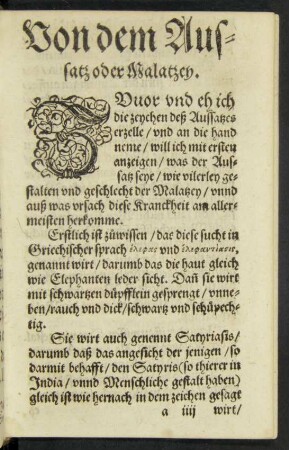 Von dem Aus-
satz oder Malatzey.
ZVuor vnd eh ich
die zeychen deß Aussatzes
erzelle / vnd an die hand
neme / will ich mit ersten
anzeigen / was der Aus-
satz seye / wie vilerley ge-
stalten vnd geschlecht der Malatzey / vnnd
auß was vrsach diese Kranckheit am aller-
meisten herkomme.
Erstlich ist züwissen / das diese sucht in
Griechischer sprach ἐλεφας vnd ἐλεφαντίασις
genannt wirt / darumb das die haut gleich
wie Elephanten leder sicht. Dañ sie wirt
mit schwartzen düpfflein gesprengt / vnne-
ben / rauch vnd dick / schwartz vnd schüpech-
tig.
Sie wirt auch genennt Satyriasis /
darumb daß das angesicht der jenigen / so
darmit behafft / den Satyris (so thierer in
India / vnnd Menschliche gestalt haben)
gleich ist wie hernach in dem zeichen gesagt
a iiij wirt /